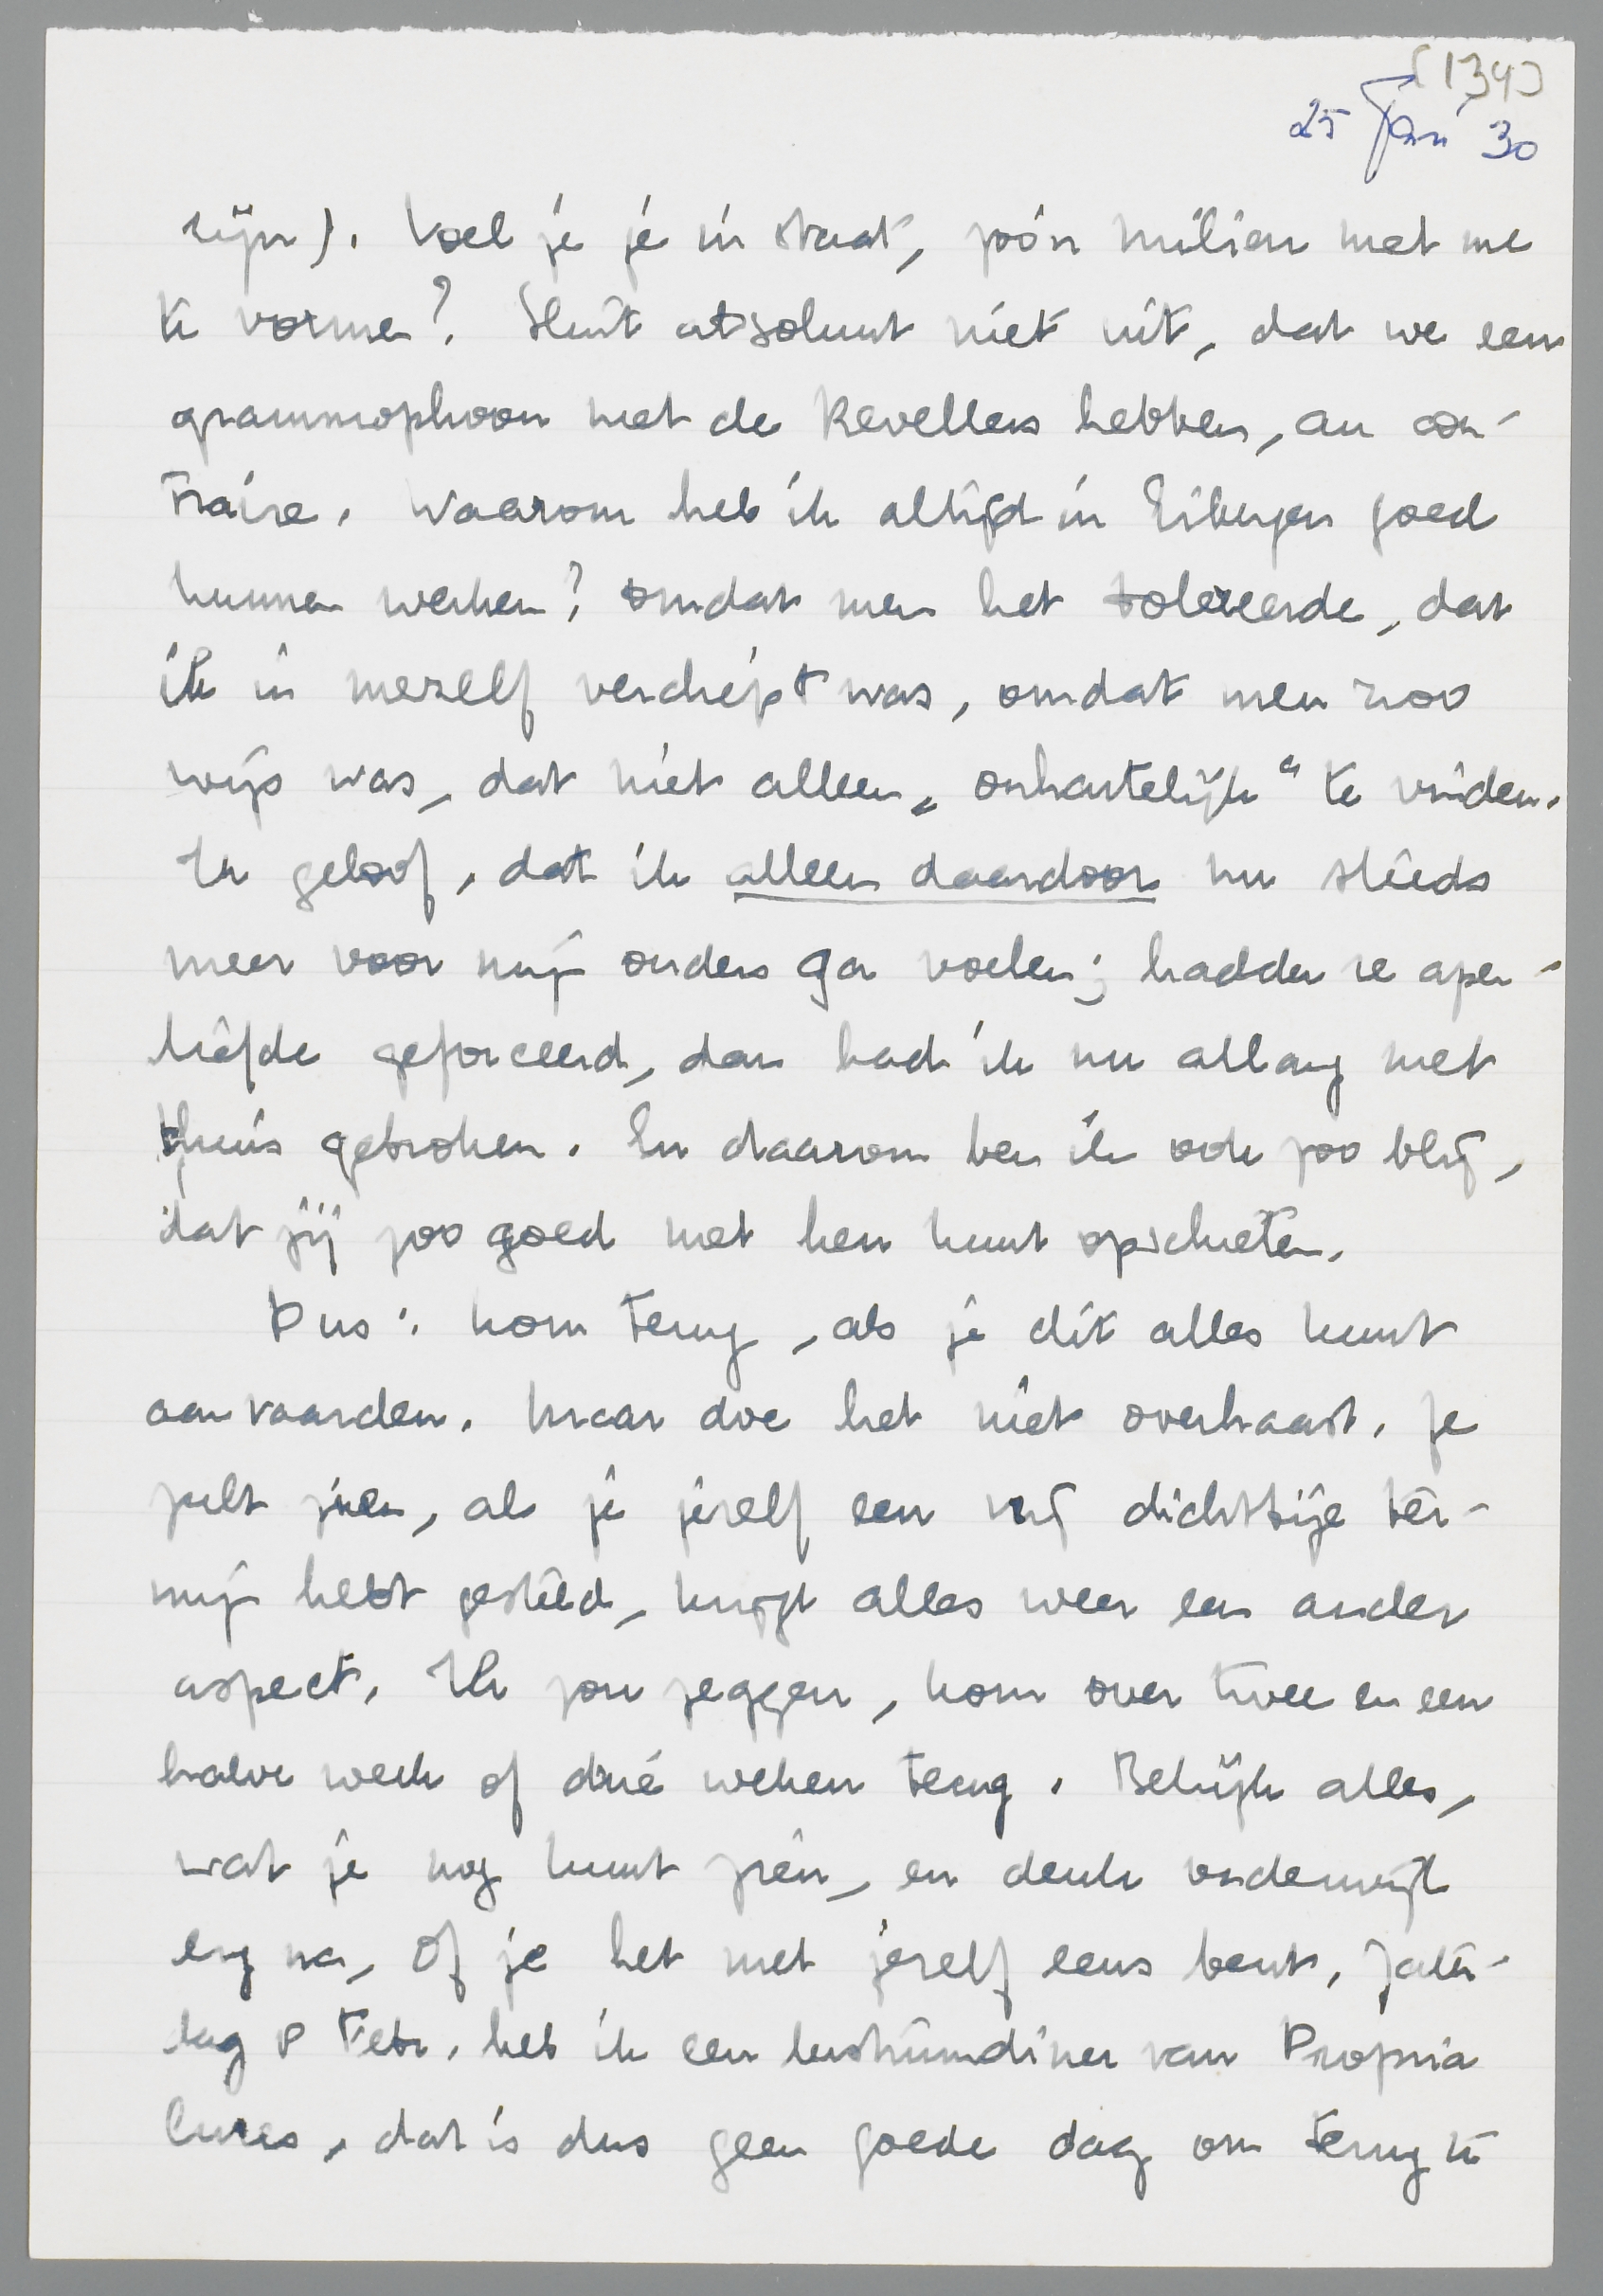 [134]
25 Jan 30
zijn). Voel je je in staat, zoo'n milieu met me
te vormen? Sluit absoluut niet uit, dat we een
grammophoon met de Revellers hebben, au con-
traire. Waarom heb ik altijd in Eibergen goed
kunnen werken? Omdat men het tolereerde, dat
ik in mezelf verdiept was, omdat men zoo
wijs was, dat niet alleen „onhartelijk" te vinden.
Ik geloof, dat ik alleen daardoor nu steeds
meer voor mijn ouders ga voelen; hadden ze apen-
liefde geforceerd, dan had ik nu allang met
thuis gebroken. En daarom ben ik ook zoo blij,
dat jij zoo goed met hen kunt opschieten.
Dus: kom terug, als je dit alles kunt
aanvaarden. Maar doe het niet overhaast. Je
zult zien, als je jezelf een vrij dichtbije ter-
mijn hebt gesteld, krijgt alles weer een ander
aspect. Ik zou zeggen, kom over twee en een
halve week of drie weken terug. Bekijk alles,
wat je nog kunt zien, en denk onderwijl
erg na, of je het met jezelf eens bent. Zater-
dag 8 Febr. heb ik een lustrumdiner van Propria
Cures, dat is dus geen goede dag om terug te